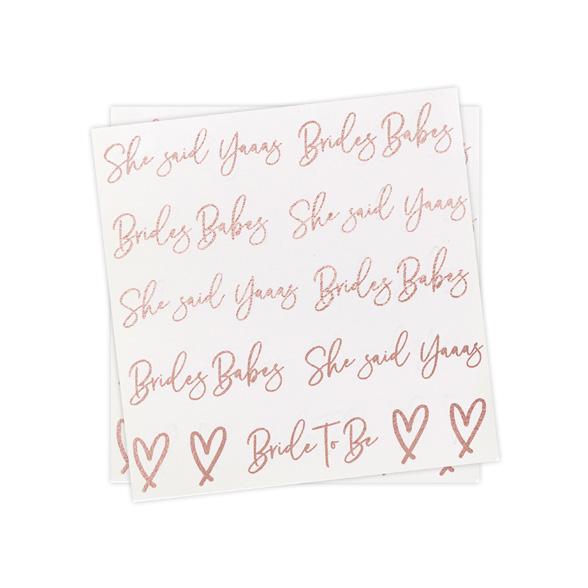 She said Yaaas Brides Babes
Brides Babes She said Yaaas
She said Yaaas Brides Babes
Brides Babes She said Yaaas
Bride To Be